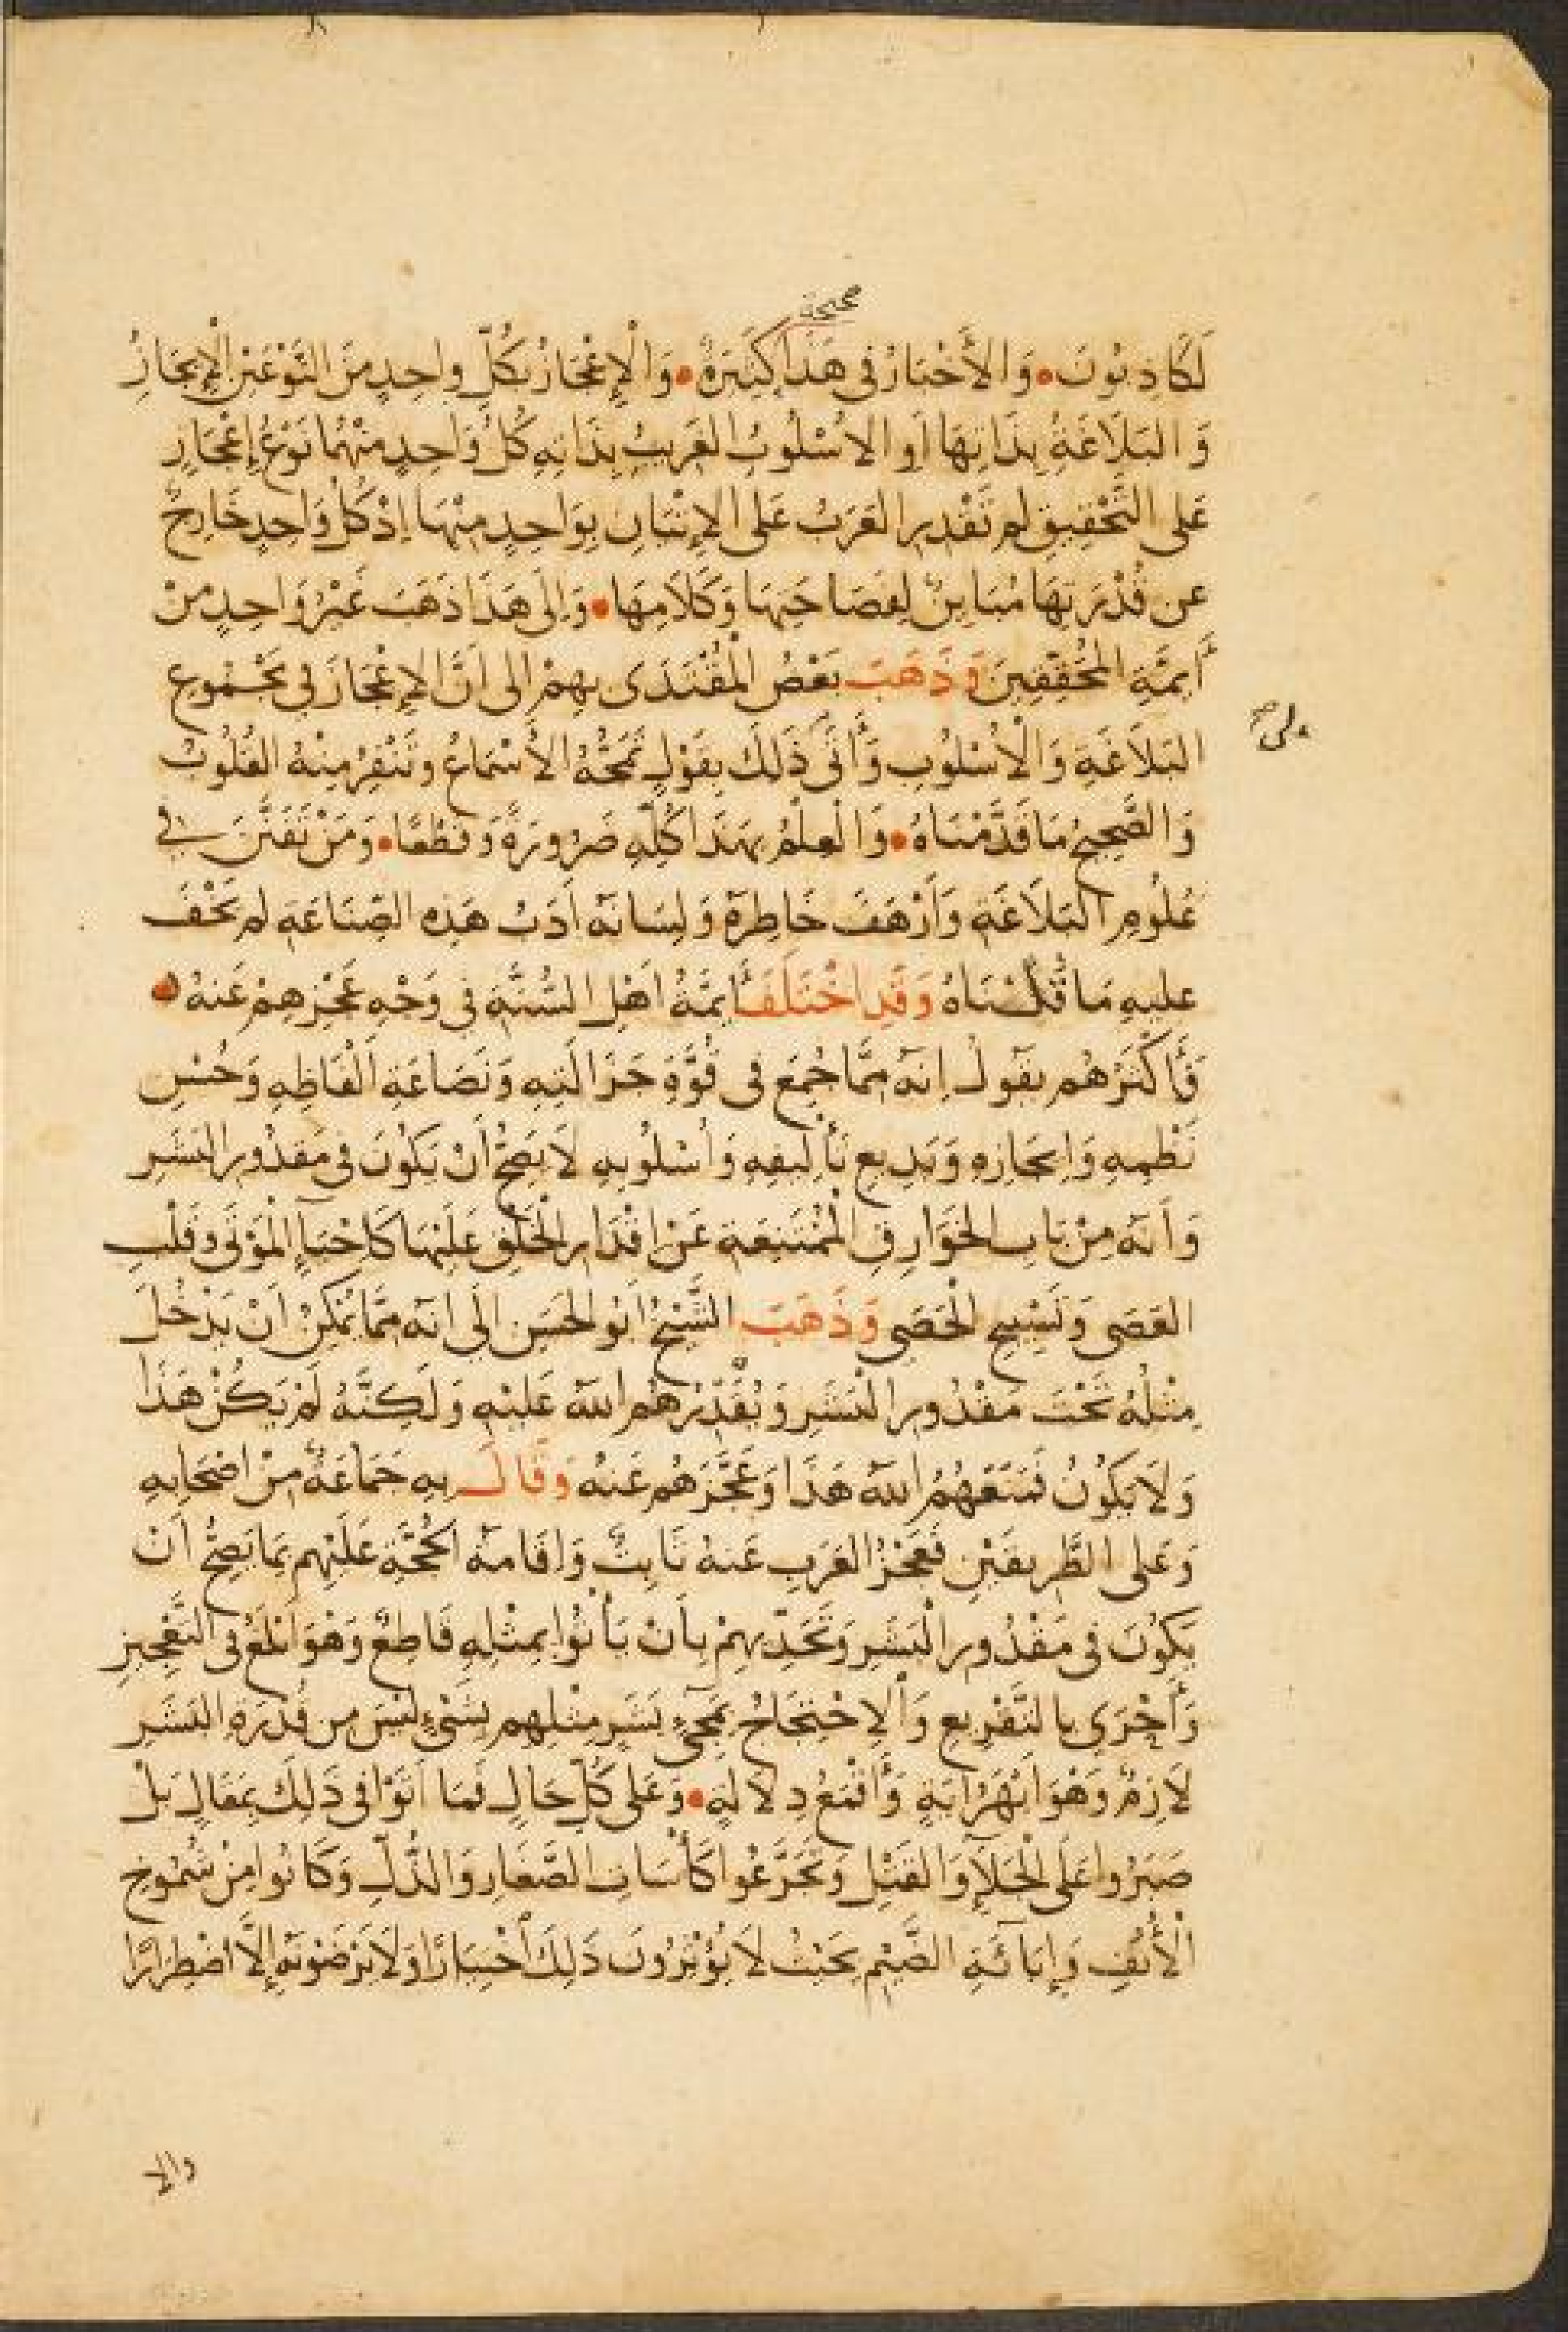 صحيحة
لَكَاذِبُونَ • وَالأَخْبَارُ فى هَذَا كَثِيرَةٌ • وَالْإِعْجَازُ بِكُلِّ واحِدٍ مِنَ النَّوْعَيْنِ الْإِيجَازُ
وَالبَلَاغَةُ بِذَاتِهَا أَوِ الاُسْلُوبُ الغَرِيبُ بِذَاتِهِ كُلُّ وَاحِدٍ مِنْهُمَا نَوْعُ إِعْجَازٍ
عَلى التَّحْقِيقِ لم تَقْدِرِ العَرَبُ عَلَى الإِتْيَانِ بِوَاحِدٍ مِنْهَا إِذْ كُلُّ وَاحِدٍ خَارِجٌ
عن قُدْرَتِهَا مُبَايِنٌ لِفَصَاحَتِهَا وَكَلَامِهَا • وَإِلَى هَذَا ذَهَبَ غَيْرُ وَاحِدٍ مِنْ
أَيِمَّةِ المُحَقِّقِينَ وَذَهَبَ بَعْضُ الْمُقْتَدَى بِهِمْ الى اَنَّ الإِعْجَازَ فِي مَجْمُوعِ
على
البَلَاغَةِ وَالْأُسْلُوبِ وَأَتَى ذَلِكَ بِقَوْلٍ تَمُجُّهُ الأَسْمَاعُ وتَنْفِرُ مِنْهُ القُلُوبُ
وَالصَّحِيحُ مَا قَدَّمْنَاهُ • وَالْعِلْمُ بِهَذَا كُلِّهِ ضَرُورَةً وَقَطْعًا • وَمَنْ تَفَنَّنَ فِي
عُلُومِ الْبَلَاغَةِ وَأَرْهَفَ خَاطِرَهُ وَلِسَانَهُ أَدَبُ هَذِهِ الصِّنَاعَةِ لم يَخْفَ
عليهِ مَا قُلْنَاهُ وَقَدِ اخْتَلَفَ أَيِمَّةُ اَهْلِ السُّنَّةِ فى وَجْهِ عَجْزِهِمْ عَنهُ •
فَأَكْثَرُهُم يَقُولُ اِنَهُ مِمَّا جُمِعَ فى قُوَّةِ جَزَالَتِهِ وَنَصَاعَةِ أَلْفَاظِهِ وَحُسْنِ
نَظْمِهِ وَاِيجَازِهِ وَبَدِيعِ تَأْلِيفِهِ وَأُسْلُوبِهِ لَا يَصِحُّ أَنْ يَكُونَ فى مَقْدُورِ البَشَرِ
وَأَنَّهُ مِنْ بَابِ الخَوَارِقِ الْمُمْتَنِعَةِ عَنْ إِقْدَارِ الْخَلْقِ عَلَيْهَا كَإِحْيَآءِ الْمَوْتَى وَقَلْبِ
العَصَى وَتَسْبِيحِ الْحَصَى وَذَهَبَ الشَّيْخُ اَبُو الحَسَنِ إِلَى انَهُ مِمَّا يُمْكِنُ اَنْ يَدْخُلَ
مِثْلُهُ تَحْتَ مَقْدُورِ الْبَشَرِ وَيُقْدِرُهُمُ اللهُ عَلَيْهِ وَلَكِنَّهُ لَمْ يَكُنْ هَذَا
وَلَا يَكُونُ فَمَنَعَهُمُ اللهُ هَذَا وَعَجَّزَهُم عَنهُ وَقَالَ بِهِ جَمَاعَةٌ مِنْ اصْحَابِهِ
وَعَلَى الطَّرِيقَيْنِ فَعَجْزُ العَرَبِ عَنهُ ثَابِتٌ وَاِقَامَةُ الْحُجَّةِ عَلَيْهِم بِمَا يَصِحُّ اَنْ
يَكُونَ فى مَقْدُورِ الْبَشَرِ وَتَحَدِّيهِمْ بِأَنْ يَأْتُوا بِمِثْلِهِ قَاطِعٌ وَهْوَ اَبْلَغُ فى التَّعْجِيزِ
وَأَحْرَى بِالتَّقْرِيعِ وَالْإِحْتِجَاجُ بِمَجِيءِ بَشَرٍ مِثْلِهِم بِشَيْءٍ لَيْسَ مِن قُدْرَةِ البَشَرِ
لَازِمٌ وَهْوَ اَبْهَرُ ايَةٍ وَأَقْمَعُ دِلَالَةٍ • وَعَلى كُلِّ حَالٍ فَمَا اَتَوْا فى ذَلِكَ بِمَقَالٍ بَلْ
صَبَرُوا عَلَى الْجَلَآءِ وَالقَتْلِ وَتَجَرَّعُوا كَأْسَاتِ الصَّغَارِ وَالذُّلِّ وَكَانُوا مِنْ شُمُوخِ
الْأُنُفِ وَإِبَائَةِ الضَّيْمِ بِحَيْثُ لَا يُؤْثِرُونَ ذَلِكَ أخْتِيَارًا وَلَا يَرْضَوْنَهُ إِلَّا اضْطِرَارًا
والا